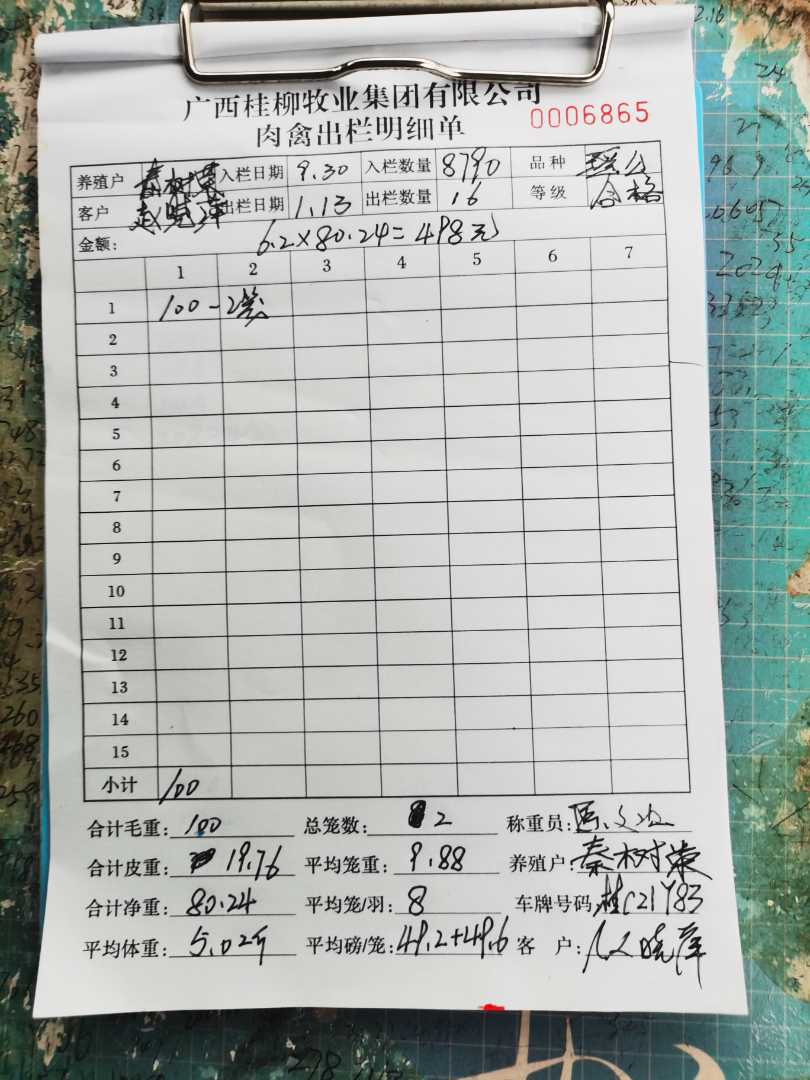 广西桂柳牧业集团有限公司
肉禽出栏明细单 0006865
养殖户 秦树荣 入栏日期 9.30 入栏数量 8790 品种
客户 赵晓萍 出栏日期 1.13 出栏数量 16 等级 合格
金额: 6.2×80.24=498元
1 2 3 4 5 6 7
1 100-2笼
2
3
4
5
6
7
8
9
10
11
12
13
14
15
小计 100
合计毛重: 100 总笼数: 2 称重员:
合计皮重: 19.76 平均笼重: 9.88 养殖户: 秦树荣
合计净重: 80.24 平均笼/羽: 8 车牌号码: 桂C21Y83
平均体重: 5.02斤 平均磅/笼: 49.2+49.6 客 户: 晓萍